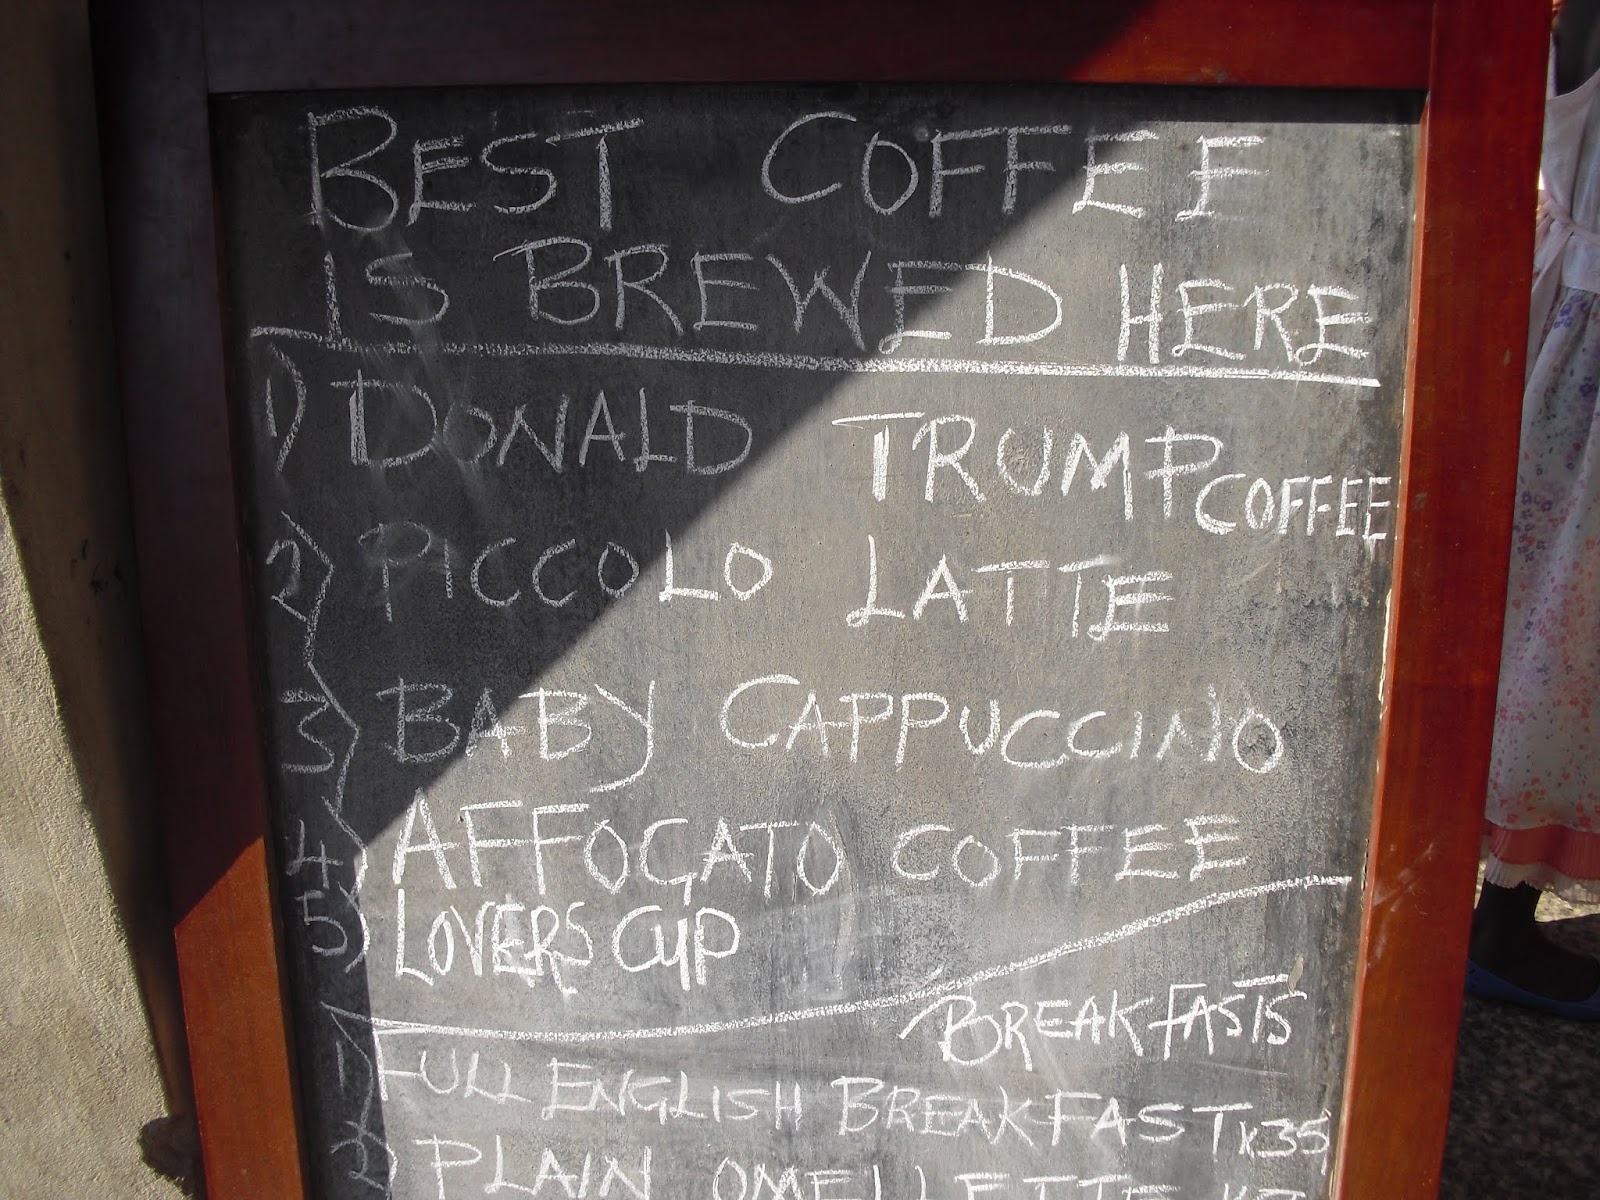 BEST COFFEE
IS BREWED HERE
1) DONALD TRUMP COFFEE
2) PICCOLO LATTE
3) BABY CAPPUCCINO
4) AFFOGATO COFFEE
5) LOVERS CUP
BREAKFASTS
1) FULL ENGLISH BREAKFAST K35
2) PLAIN OMELLETTE